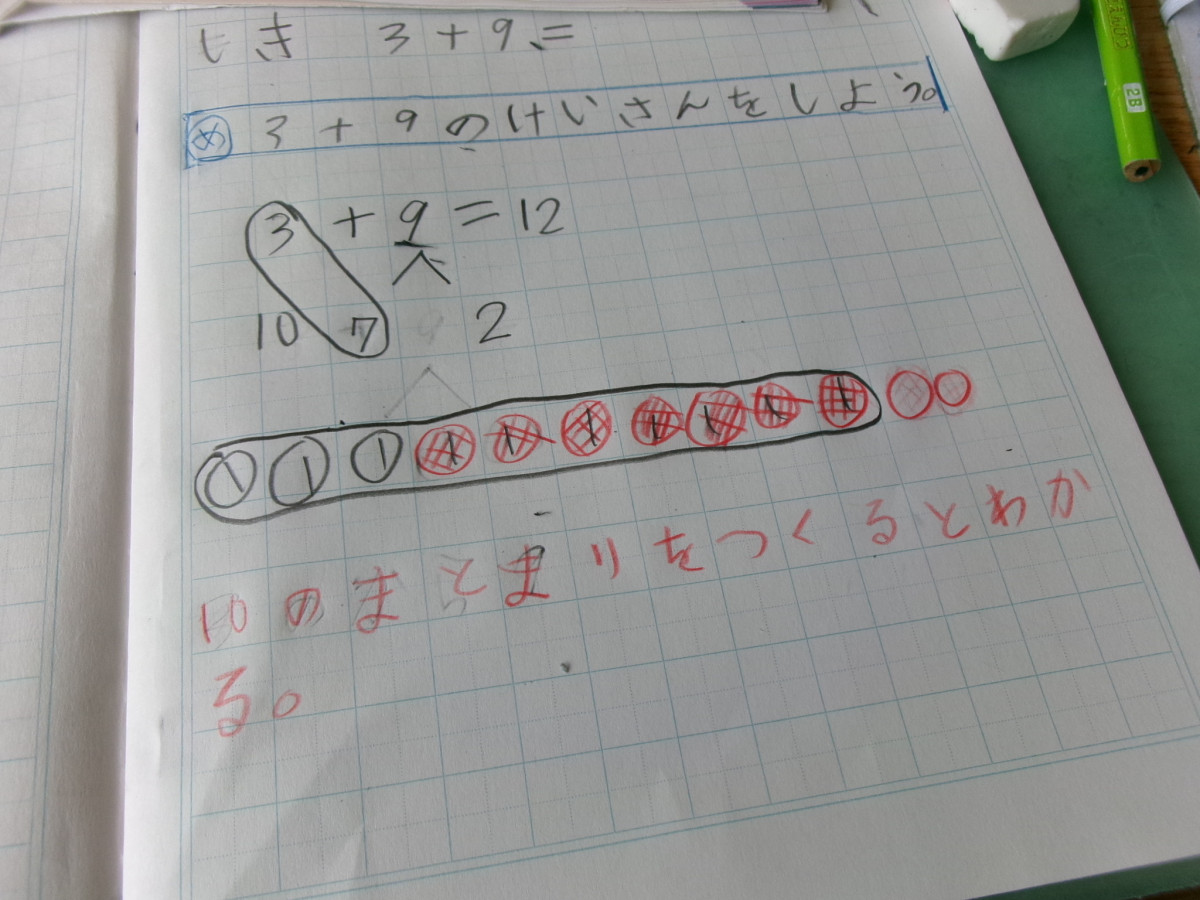 しき 3+9=
め 3+9のけいさんをしよう。
3+9=12
10 7 2
10のまとまりをつくるとわか
る。
2B